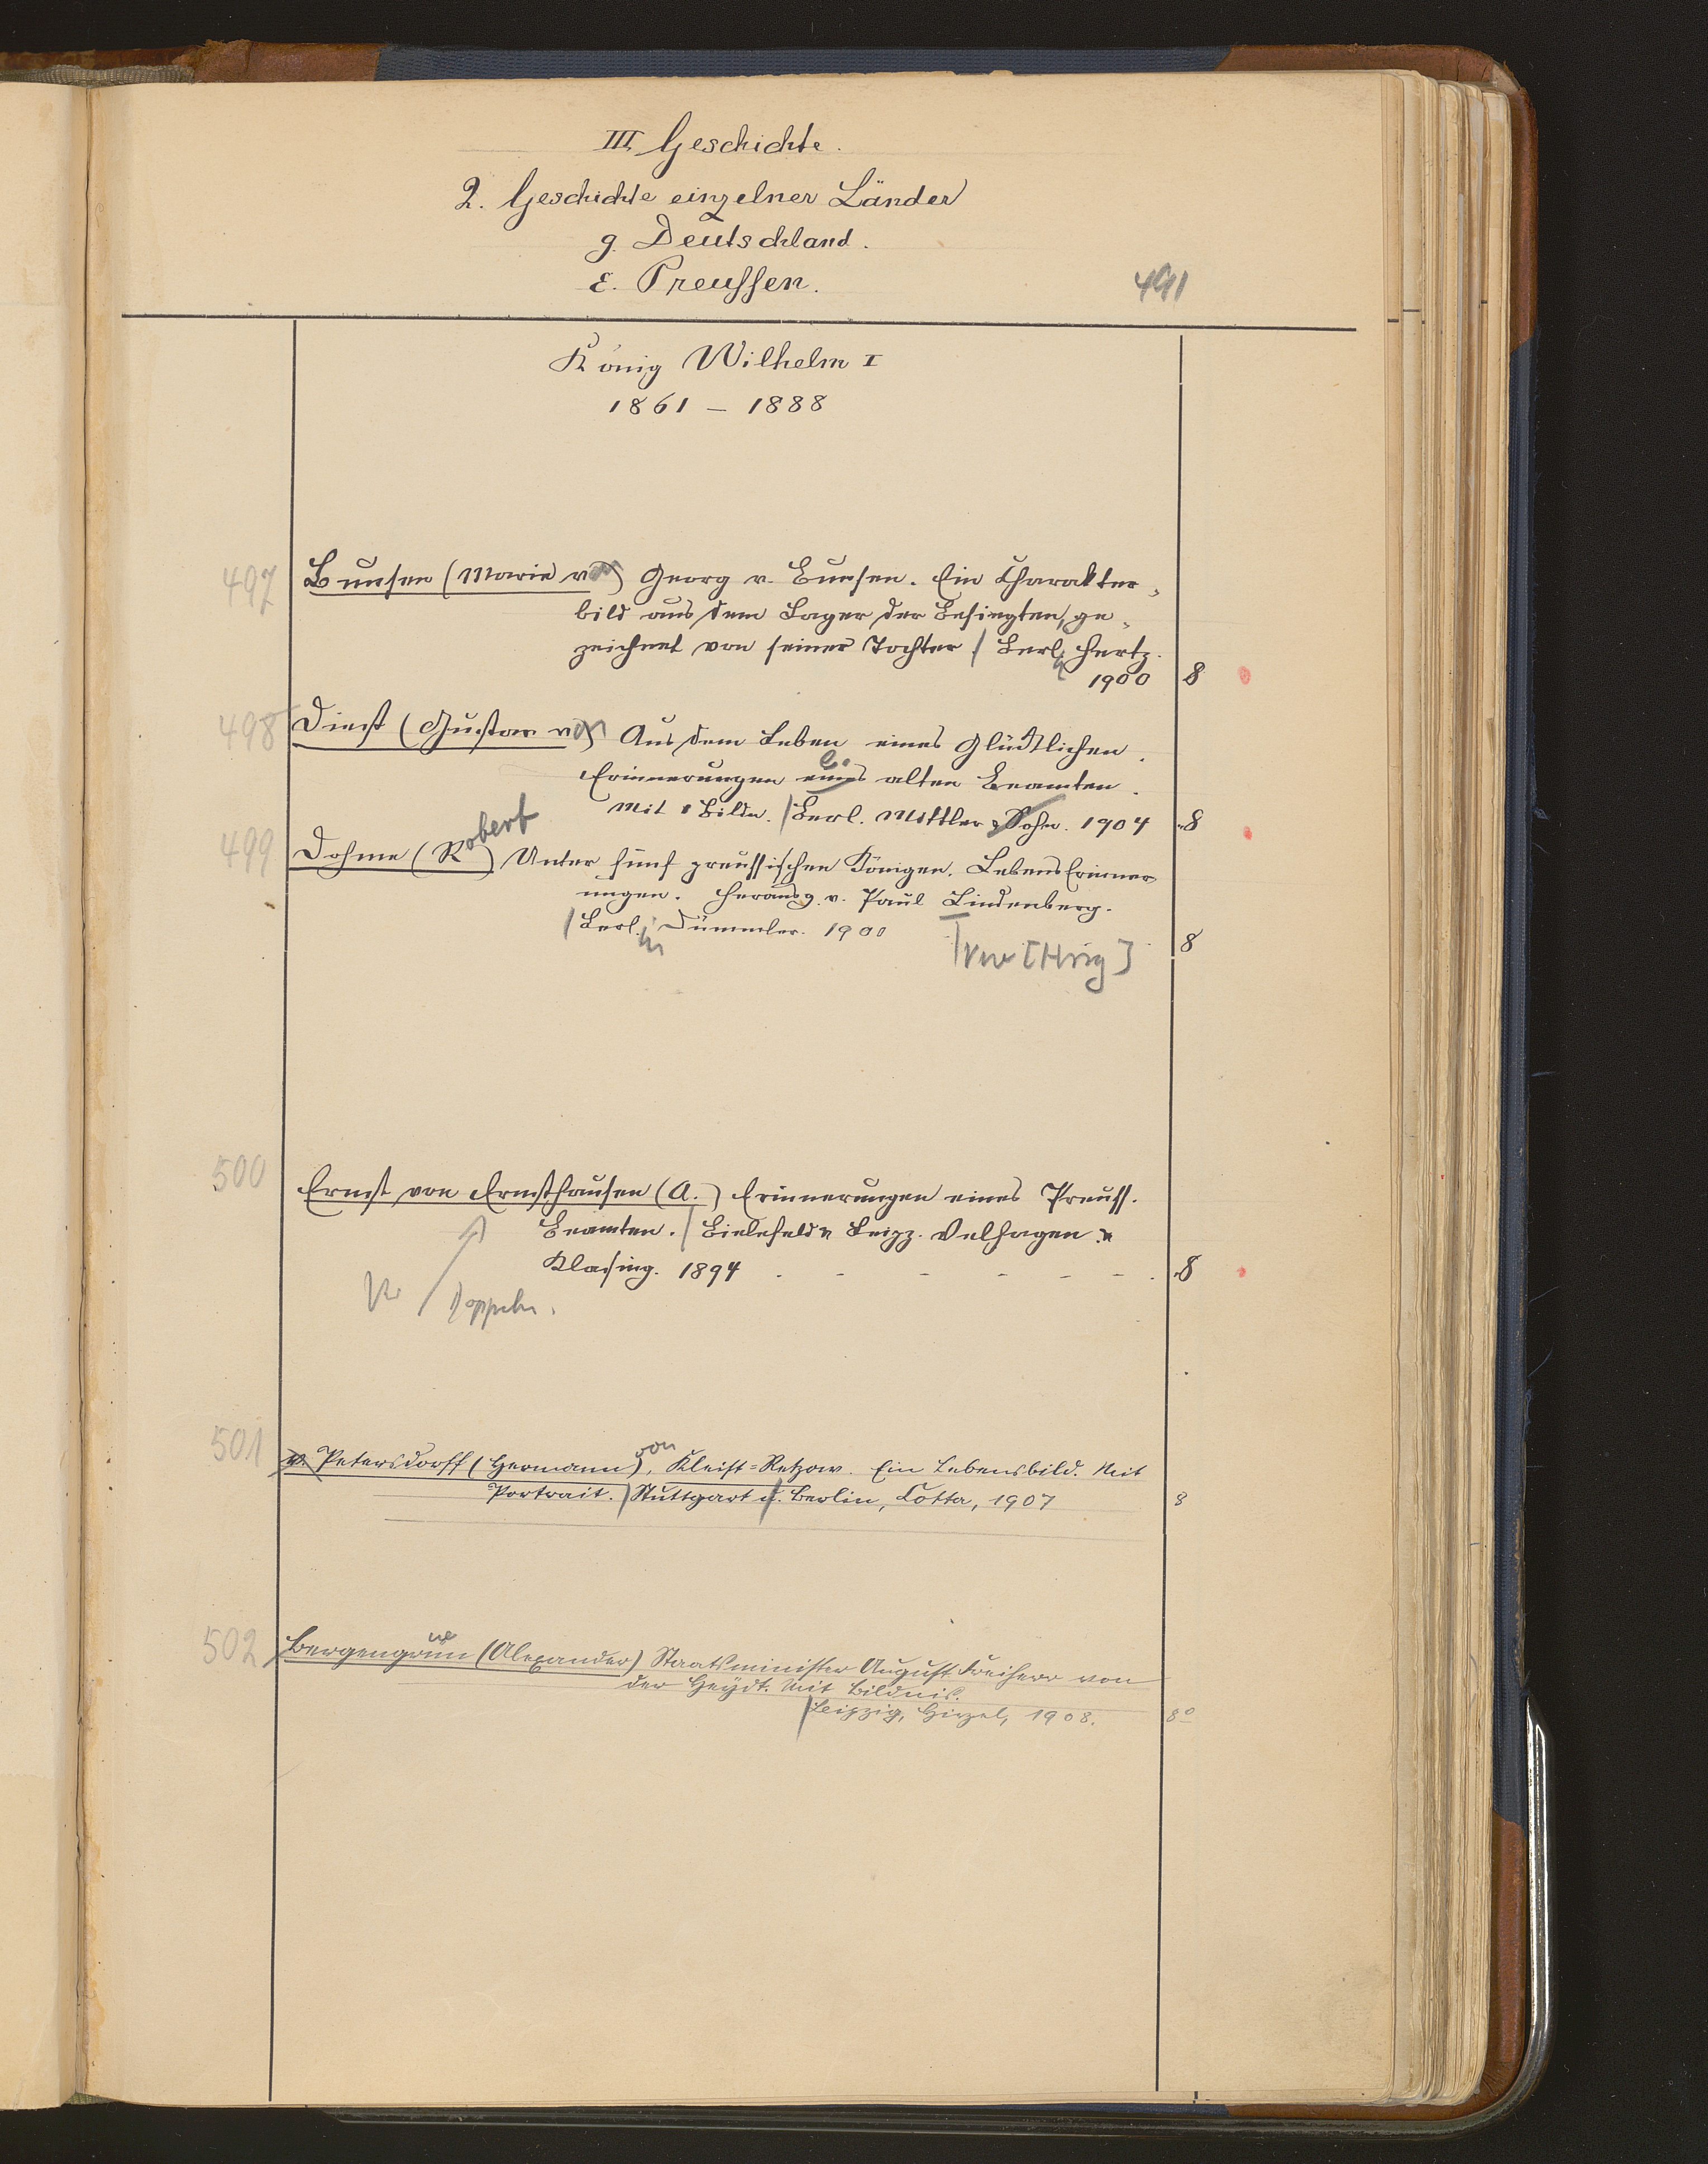 III. Geschichte.
2. Geschichte einzelner Länder
g. Deutschland.
ε. Preußen.
491
König Wilhelm I
1861 – 1888
497 Bunsen (Marie von) Georg v. Bunsen. Ein Charakter-
bild aus dem Lager der Besiegten, ge-
zeichnet von seiner Tochter / Berl. Hertz.
1900 8
498 Diest (Gustav von) Aus dem Leben eines Glücklichen.
Erinnerungen eines alten Beamten.
Mit 1 Bildn. / Berl. Mittler & Sohn. 1904 8
499 Dohme (Robert) Unter fünf preussischen Königen. Lebens Erinner-
ungen. Herausg. v. Paul Lindenberg.
/ Berlin Dümmler. 1900 8
500 Ernst von Ernsthausen (A.) Erinnerungen eines Preuss.
Beamten. / Bielefeld u Leipz. Velhagen u
Klasing. 1894 8
501 v. Petersdorff (Hermann) von, Kleist=Retzow. Ein Lebensbild. Mit
Portrait. / Stuttgart u. Berlin, Cotta, 1907 8
502 Bergengrün (Alexander) Staatsminister August Freiherr von
der Heydt. Mit Bildnis.
/ Leipzig, Hirzel, 1908. 8º